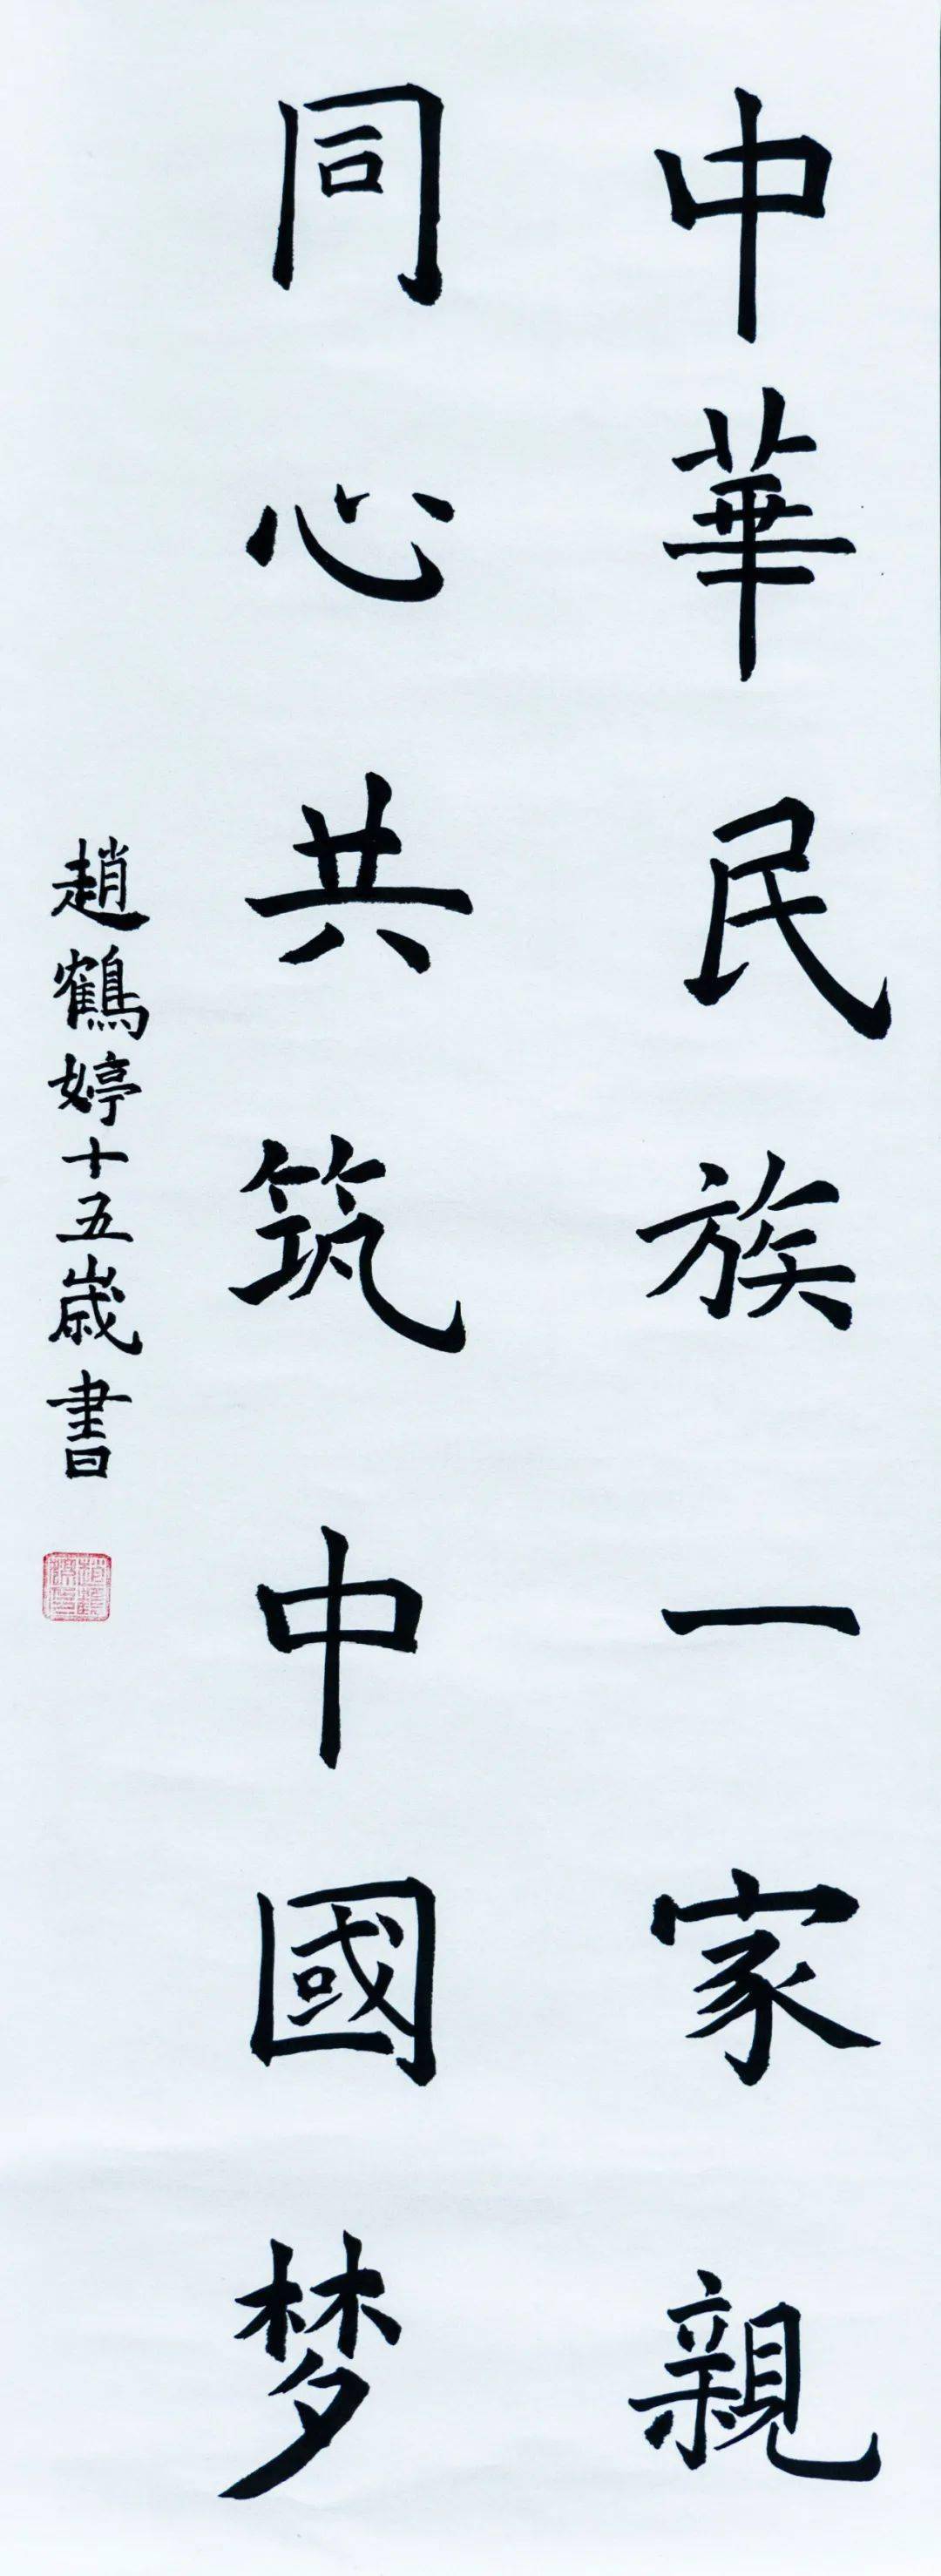 中華民族一家親
同心共筑中國梦
趙鶴婷十五歲書